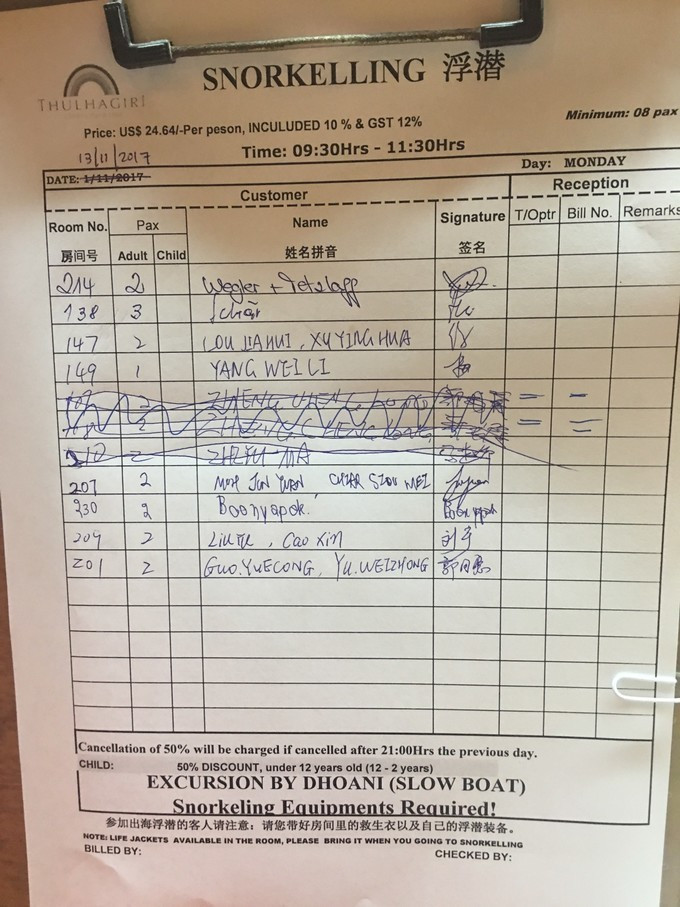 SNORKELLING 浮潜
THULHAGIRI
Minimum: 08 pax
Price: US$ 24.64/-Per peson, INCULUDED 10 % & GST 12%
13/11/2017
Time: 09:30Hrs - 11:30Hrs
Day: MONDAY
DATE: 1/11/2017
Customer Reception
Room No. Pax Name Signature T/Optr Bill No. Remarks
房间号 Adult Child 姓名拼音 签名
214 2 Wegler +
138 3
147 2 LOU JIAHUI, XU YING HUA
149 1 YANG WEI LI
2 ZHENG CHENG
2 ZHENG CHENG
2
207 2 MOH JUN YUAN CHIAR SIOU MEI
230 2 Boonyapok.
209 2 Cao Xin
201 2 GUO.YUECONG, YU.WEIZHONG
Cancellation of 50% will be charged if cancelled after 21:00Hrs the previous day.
CHILD: 50% DISCOUNT, under 12 years old (12 - 2 years)
EXCURSION BY DHOANI (SLOW BOAT)
Snorkeling Equipments Required!
参加出海浮潜的客人请注意：请您带好房间里的救生衣以及自己的浮潜装备。
NOTE: LIFE JACKETS AVAILABLE IN THE ROOM, PLEASE BRING IT WHEN YOU GOING TO SNORKELLING
BILLED BY: CHECKED BY: